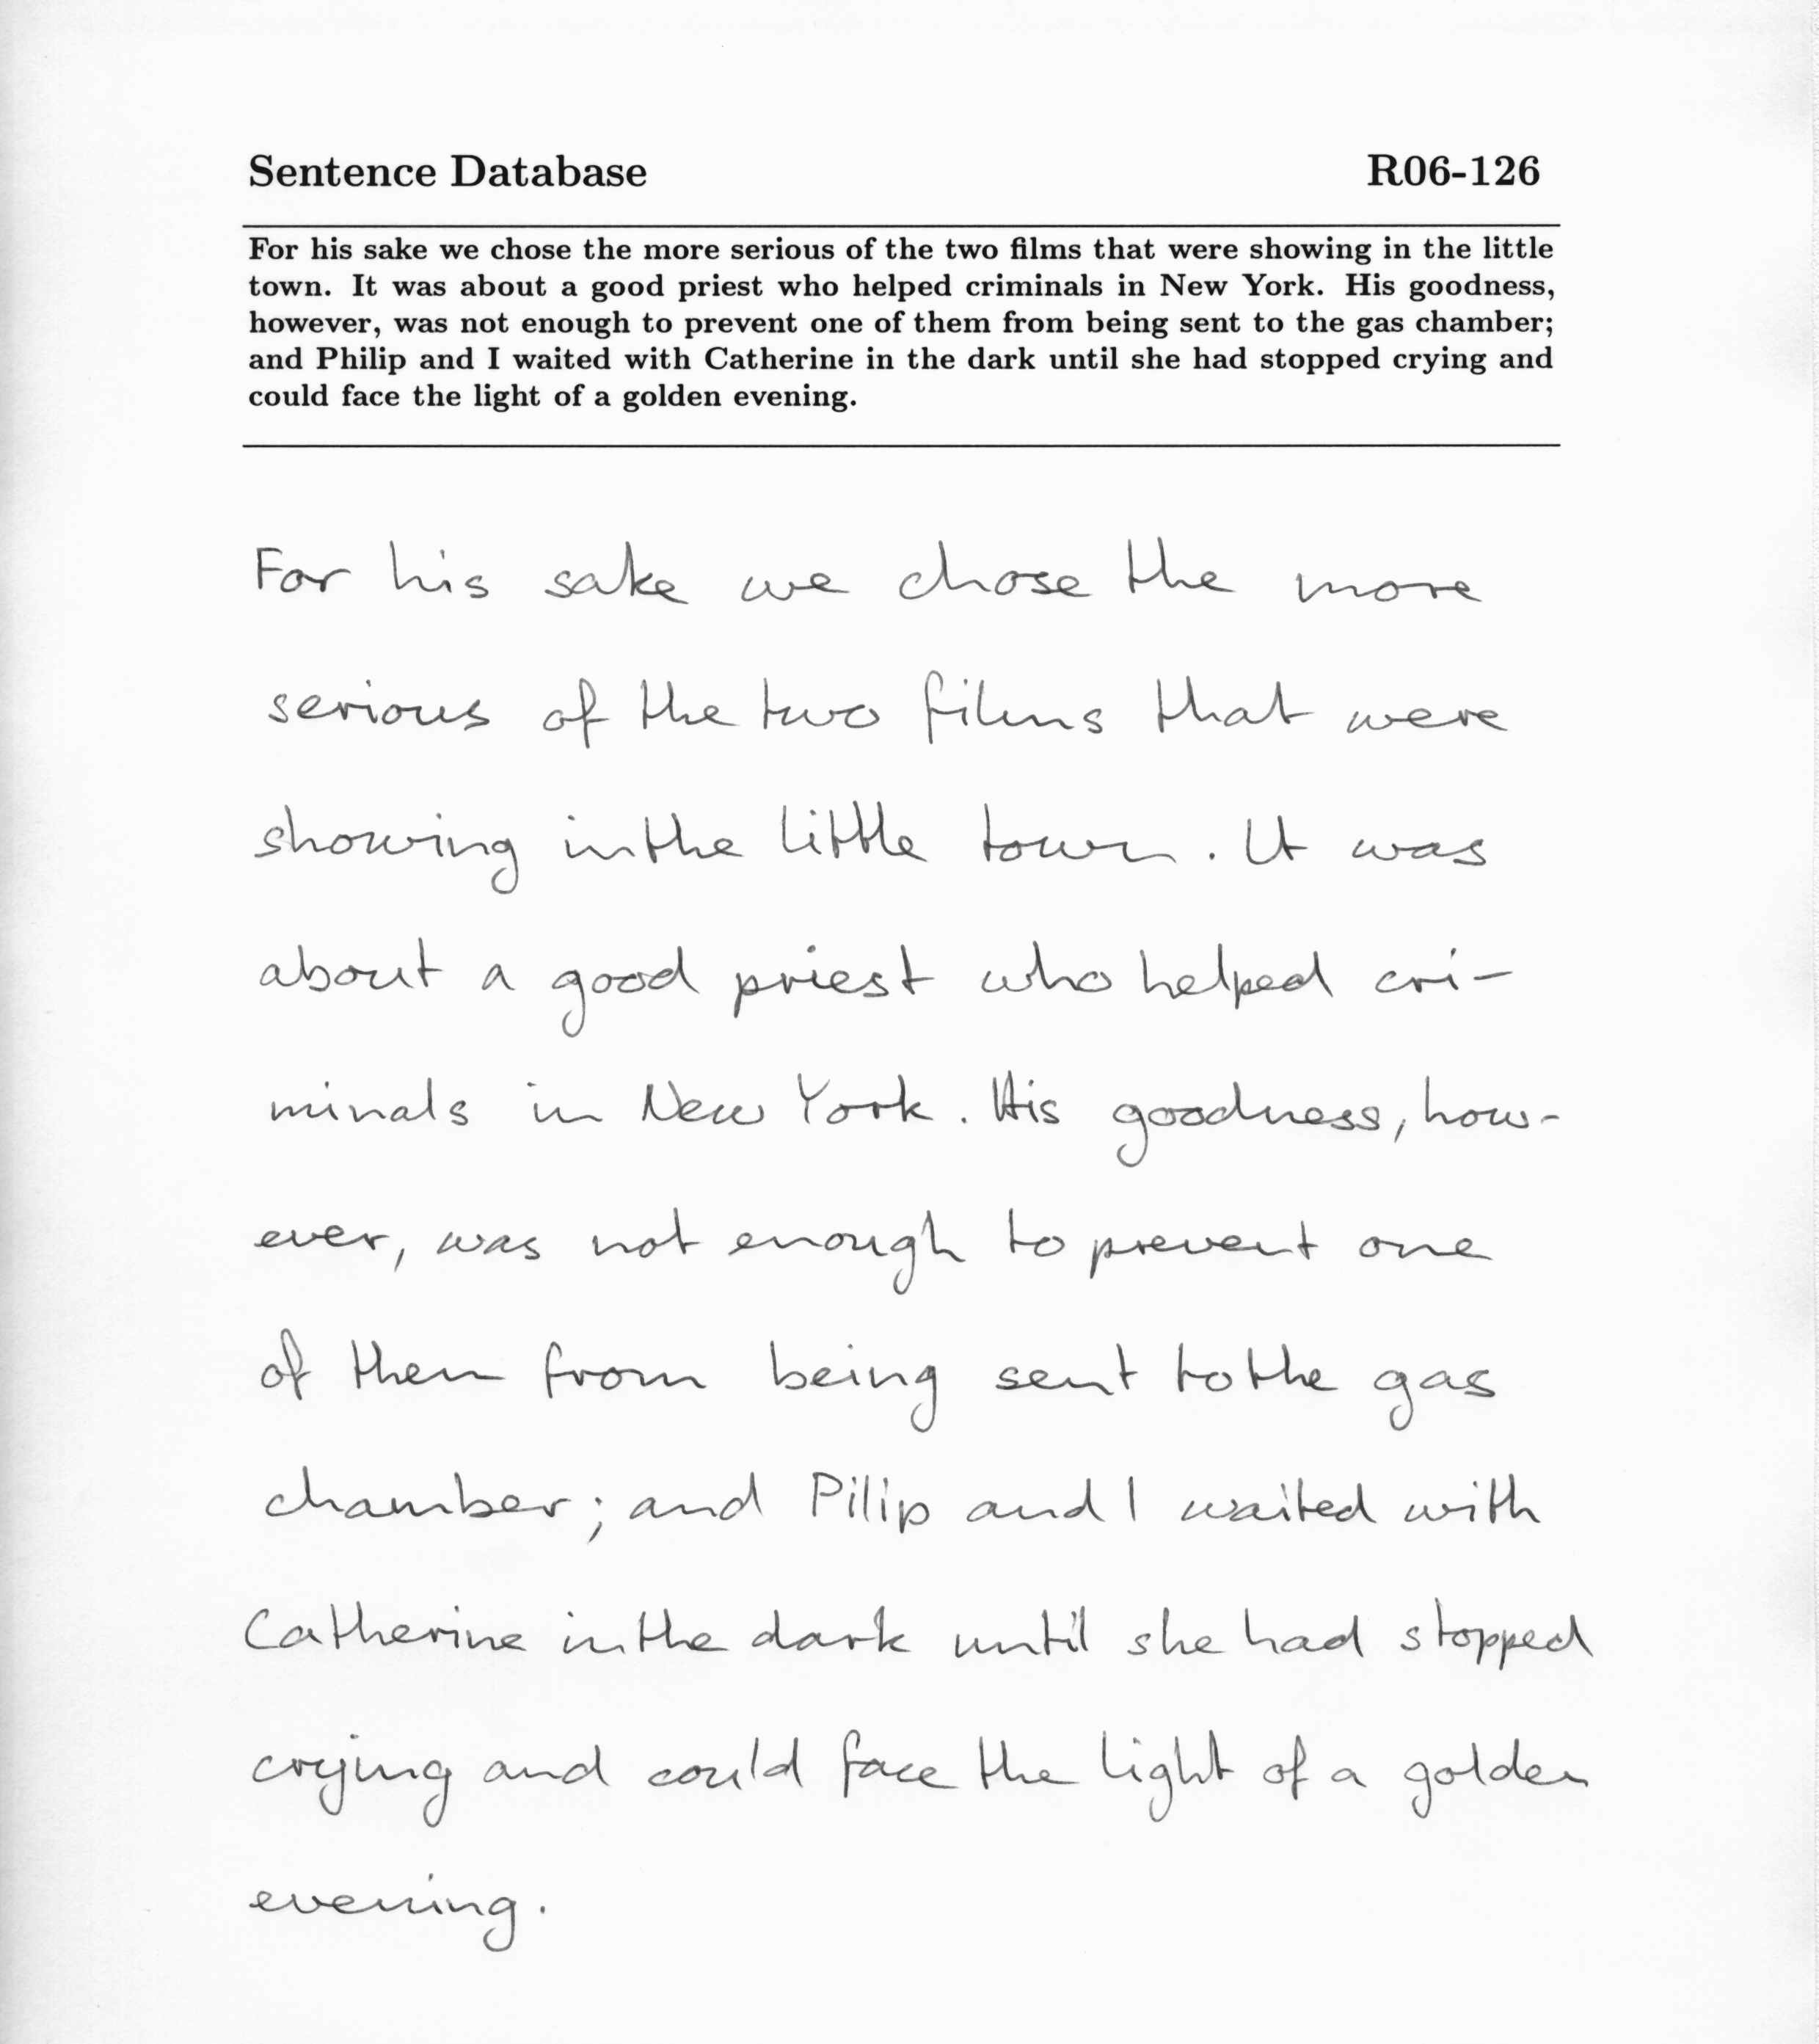 Sentence Database R06-126
For his sake we chose the more serious of the two films that were showing in the little
town. It was about a good priest who helped criminals in New York. His goodness,
however, was not enough to prevent one of them from being sent to the gas chamber;
and Philip and I waited with Catherine in the dark until she had stopped crying and
could face the light of a golden evening.
For his sake we chose the more
serious of the two films that were
showing in the little town. It was
about a good priest who helped cri-
minals in New York. His goodness, how-
ever, was not enough to prevent one
of them from being sent to the gas
chamber; and Pilip and I waited with
Catherine in the dark until she had stopped
crying and could face the light of a golden
evening.